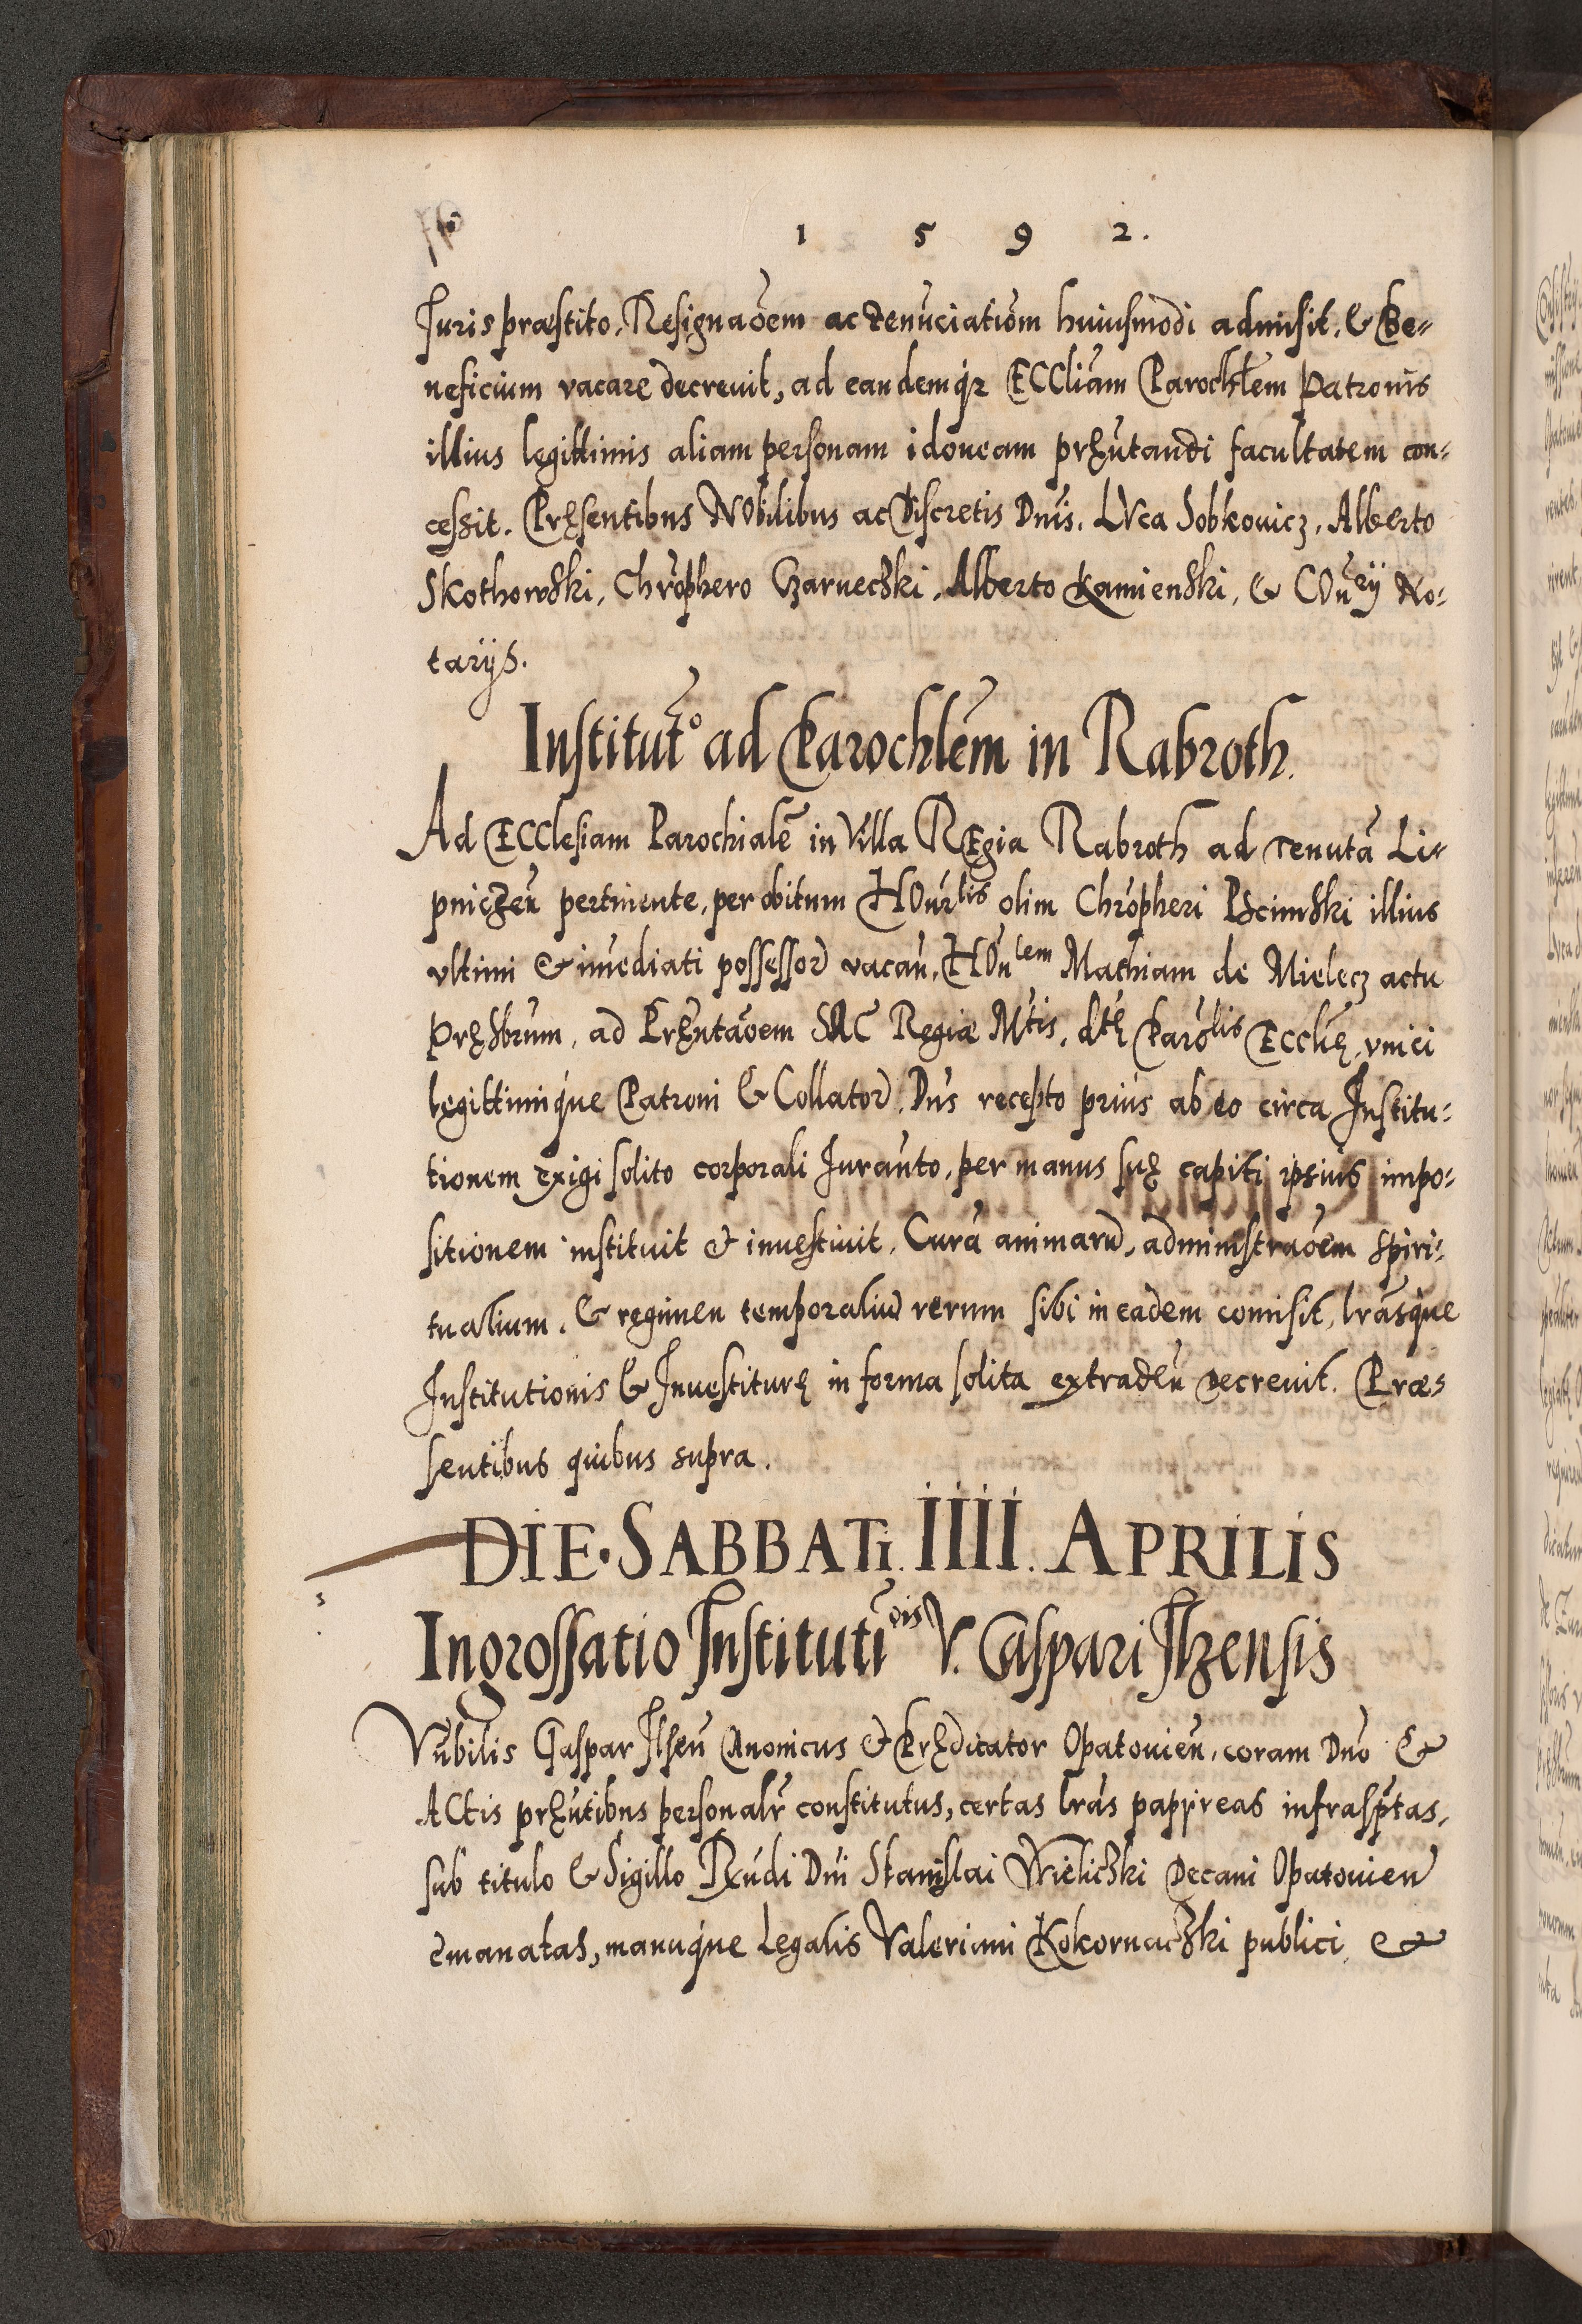 76
1 5 9 2.
Juris præstito, Resignãoem ac renũciatiõm huiusmodi admisit, & Be-
neficium vacare decrevit, ad eandemqȝ ECCliãm Parochłem Patronis
illius legittimis aliam personam idoneam pręñtandi facultatem con-
cessit. Pręsentibus NObilibus ac Discretis Dnis. LVca Sobkowicz, Alberto
Skothowski, Chrõphero Czarnecski, Alberto Kamienski, & COñrij No-
tarijs.
Institutõ ad Parochlẽm in Rabroth.
Ad ECClesiam Parochialẽ in Villa REgia Rabroth ad Tenutã Li-
pniczeñ pertinente, per obitum HOnrlis olim Chrõpheri Pscinski illius
vltimi & im̃ediati possessoꝝ vacañ, HOñlem Mathiam de Mielecz actu
pręsbrum, ad Pręntãoem SAC Regiæ Mtis, dtę Parõlis Eccłię, vnici
legittimique Patroni & Collatoꝝ. Dñs recepto prius ab eo circa Institu-
tionem exigi solito corporali Jurañto, per manus suę capiti ipsius impo-
sitionem instituit & investivit, Curã animaꝝ, administrãoem spiri-
tualium, & regimen temporaliũ rerum sibi in eadem comisit, lrãsque
Institutionis & Investiturę in forma solita extradeñ decrevit. Præ-
sentibus quibus supra.
DIE. SABBATi. IIII. APRILIS
Ingrossatio Institutiõis V. Caspari Ilzensis
Vñbilis Caspar Ilseñ Canonicus & Prędicator Opatovieñ, coram Dño &
ACtis pręñtibus personalr̃ constitutus, certas lrãs papyreas infrasptas,
sub titulo & Sigillo Rñdi Dñi Stanislai Wielicski Decani Opatovień
emanatas, manuque Legalis Valeriani Kokornacski publici &